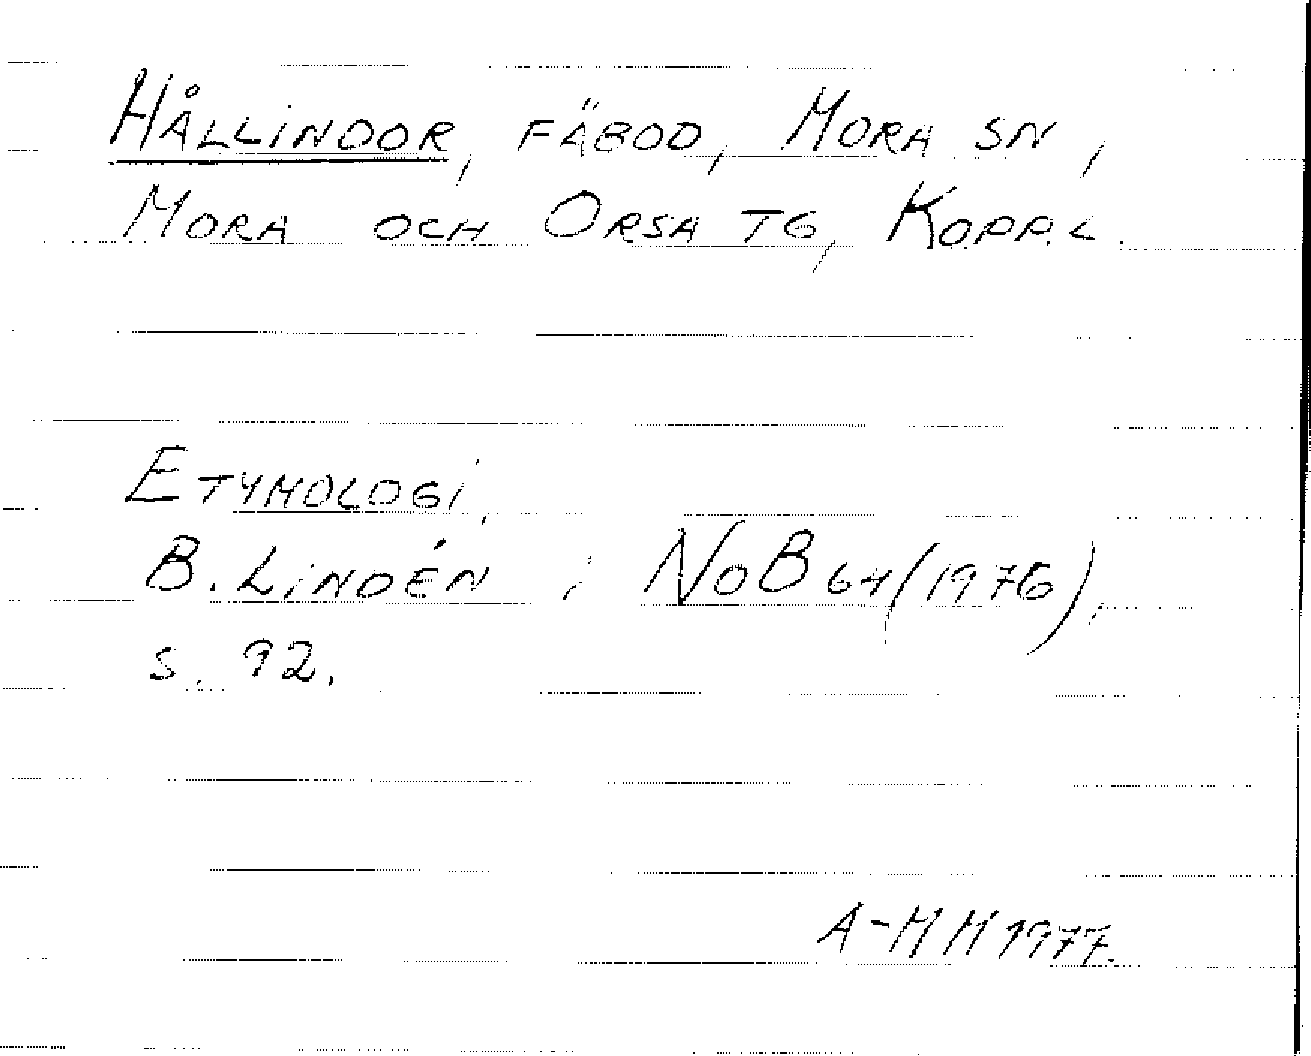 HÅLLINDOR, FÄBOD, MORA SN,
MORA OCH ORSA TG, KOPP.L.
ETYMOLOGI,
B. LINDÉN i NoB 64 (1976),
s. 92.
A-MM 1977.